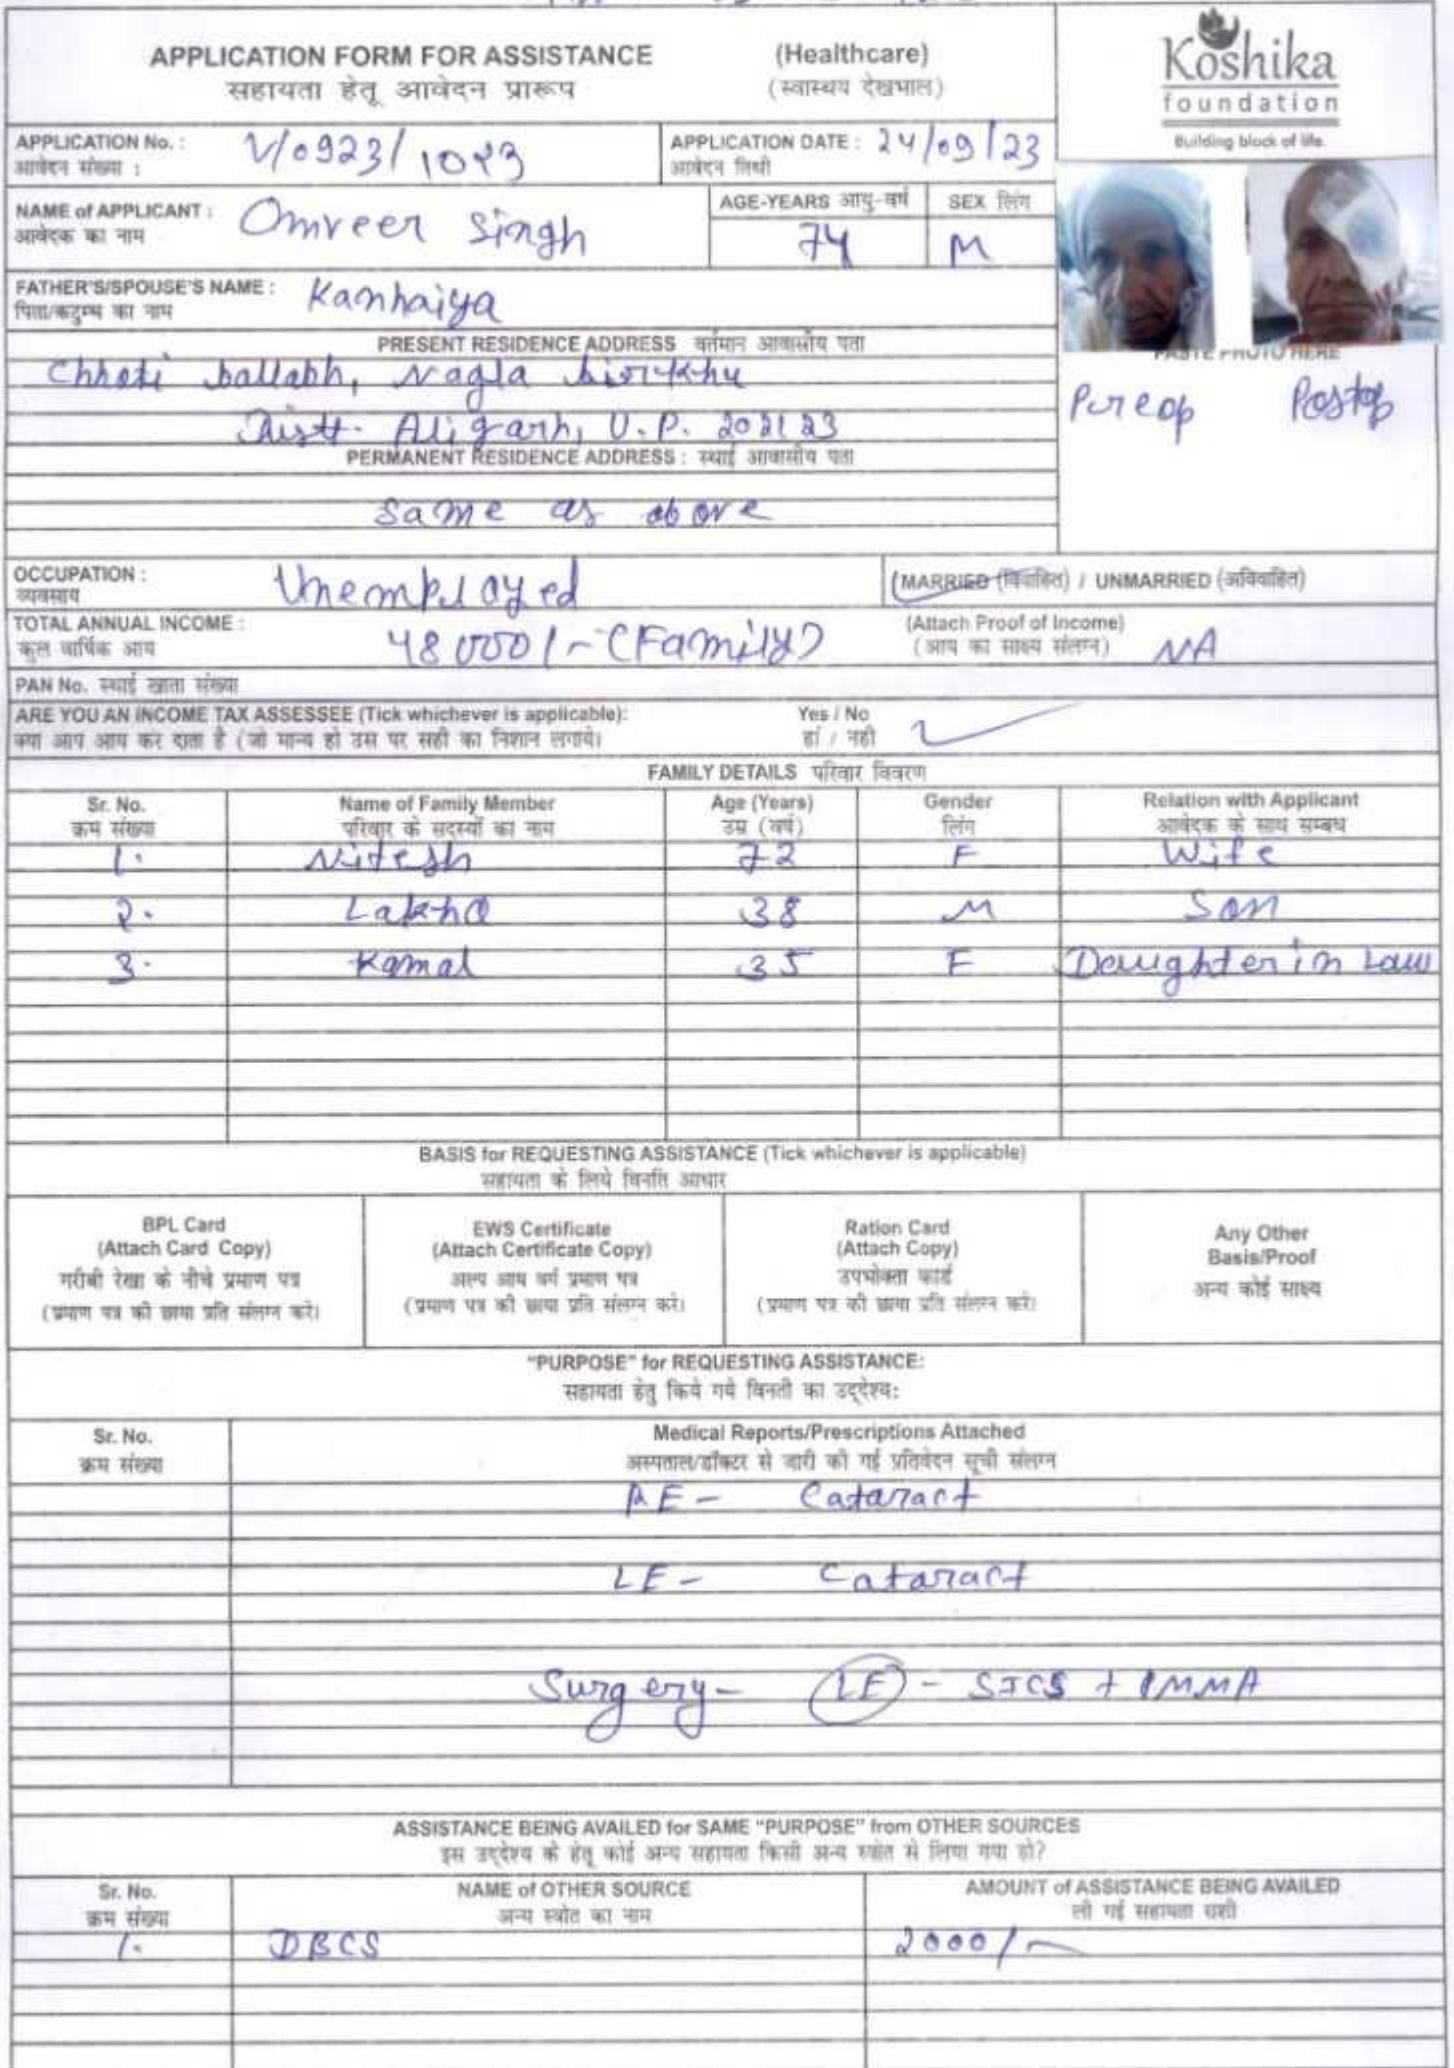 APPLICATION FORM FOR ASSISTANCE (Healthcare)
सहायता हेतू आवेदन प्रारूप (स्वास्थय देखभाल)
Koshika
foundation
Building block of life.
APPLICATION No. : V/0923/1023
आवेदन संख्या :
APPLICATION DATE : 24/09/23
आवेदन तिथी
NAME of APPLICANT : Omveer Singh
आवेदक का नाम
AGE-YEARS आयु-वर्ष SEX लिंग
74 M
FATHER'S/SPOUSE'S NAME : Kanhaiya
पिता/कटुम्ब का नाम
PRESENT RESIDENCE ADDRESS वर्तमान आवासीय पता
Chhoti ballabh, Nagla
Distt. Aligarh, U.P. 202123
PASTE PHOTO HERE
Preop Postop
PERMANENT RESIDENCE ADDRESS : स्थाई आवासीय पता
Same as above
OCCUPATION : Unemployed
व्यवसाय
(MARRIED (विवाहित) / UNMARRIED (अविवाहित)
TOTAL ANNUAL INCOME : 48000/- (Family)
कुल वार्षिक आय
(Attach Proof of Income) NA
(आय का साक्ष्य संलग्न)
PAN No. स्थाई खाता संख्या
ARE YOU AN INCOME TAX ASSESSEE (Tick whichever is applicable): Yes / No
क्या आप आय कर दाता है (जो मान्य हो उस पर सही का निशान लगाये। हां / नही
FAMILY DETAILS परिवार विवरण
Sr. No. Name of Family Member Age (Years) Gender Relation with Applicant
क्रम संख्या परिवार के सदस्यों का नाम उम्र (वर्ष) लिंग आवेदक के साथ सम्बध
1. Nitesh 72 F Wife
2. Lakho 38 M Son
3. Kamal 35 F Daughter in Law
BASIS for REQUESTING ASSISTANCE (Tick whichever is applicable)
सहायता के लिये विनति आधार
BPL Card
(Attach Card Copy)
गरीबी रेखा के नीचे प्रमाण पत्र
(प्रमाण पत्र की छाया प्रति संलग्न करे।
EWS Certificate
(Attach Certificate Copy)
अल्प आय वर्ग प्रमाण पत्र
(प्रमाण पत्र की छाया प्रति संलग्न करे।
Ration Card
(Attach Copy)
उपभोक्ता कार्ड
(प्रमाण पत्र की छाया प्रति संलग्न करे।
Any Other
Basis/Proof
अन्य कोई साक्ष्य
"PURPOSE" for REQUESTING ASSISTANCE:
सहायता हेतु किये गये विनती का उद्देश्य:
Sr. No. Medical Reports/Prescriptions Attached
क्रम संख्या अस्पताल/डॉक्टर से जारी की गई प्रतिवेदन सूची संलग्न
RE - Cataract
LE - Cataract
Surgery - LE - SICS + PMMA
ASSISTANCE BEING AVAILED for SAME "PURPOSE" from OTHER SOURCES
इस उद्देश्य के हेतू कोई अन्य सहायता किसी अन्य स्त्रोत से लिया गया हो?
Sr. No. NAME of OTHER SOURCE AMOUNT of ASSISTANCE BEING AVAILED
क्रम संख्या अन्य स्त्रोत का नाम ली गई सहायता राशी
1. DBCS 2000/-